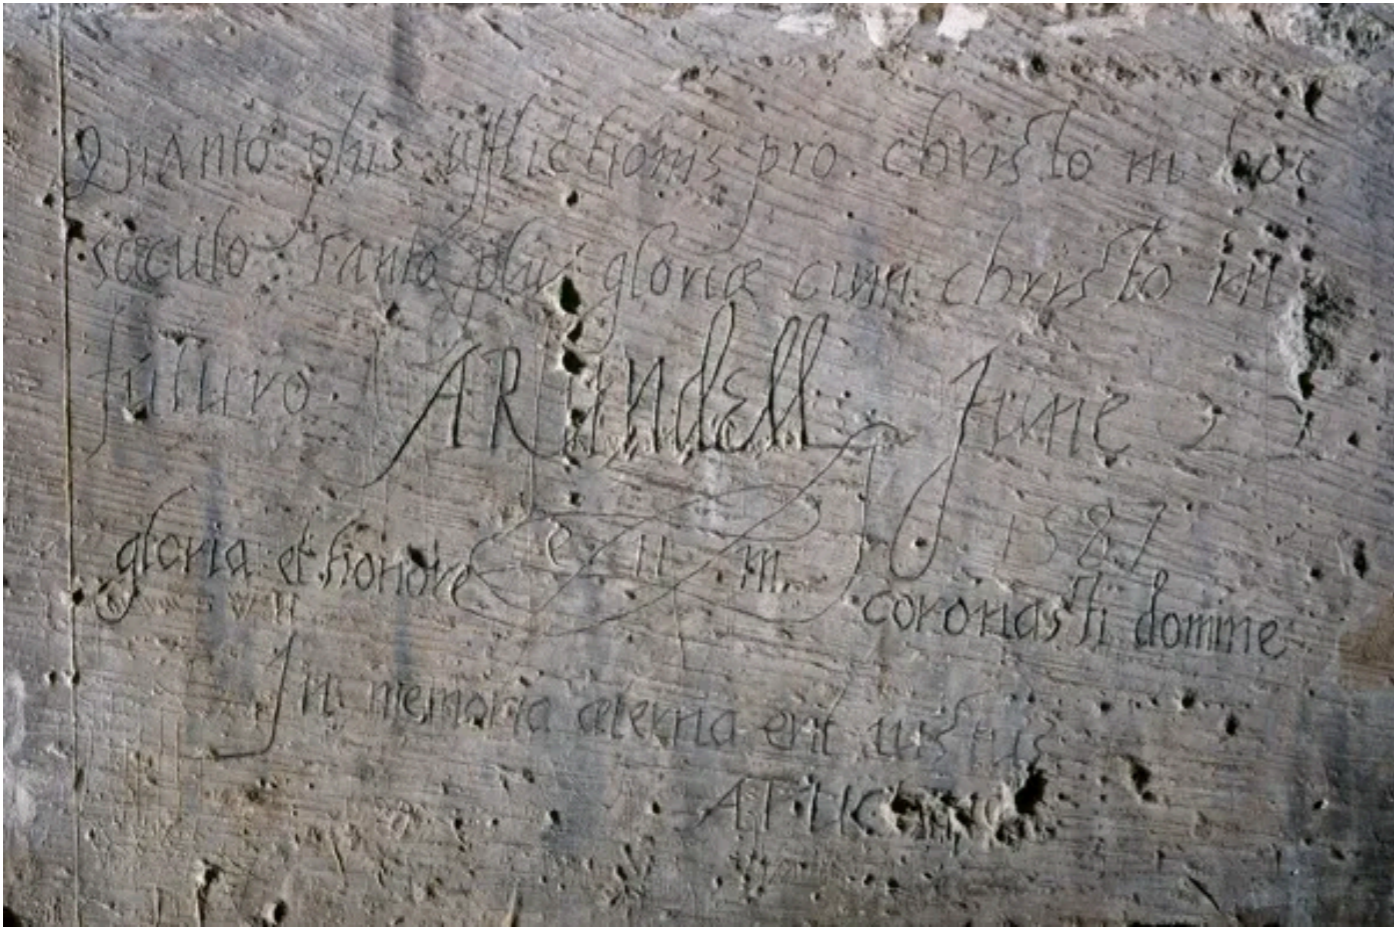 Quanto plus afflictionis pro christo in hoc
saeculo tanto plus gloriæ cum christo in
futuro ARundEll June 22
1587
gloria et honore eum coronasti domine
W H
In memoria æterna erit iustus